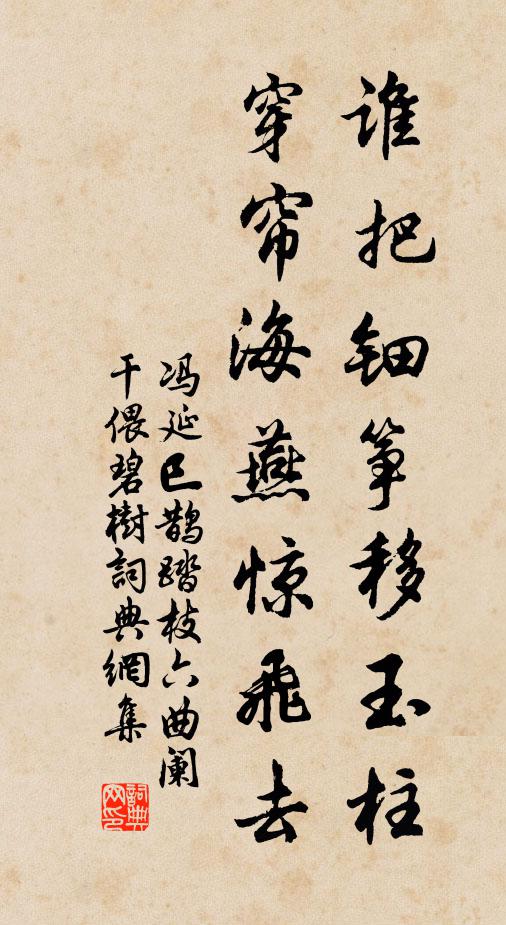 谁把钿筝移玉柱
穿帘海燕惊飞去
冯延巳鹊踏枝六曲阑
干偎碧樹詞典網集
詞典
网印